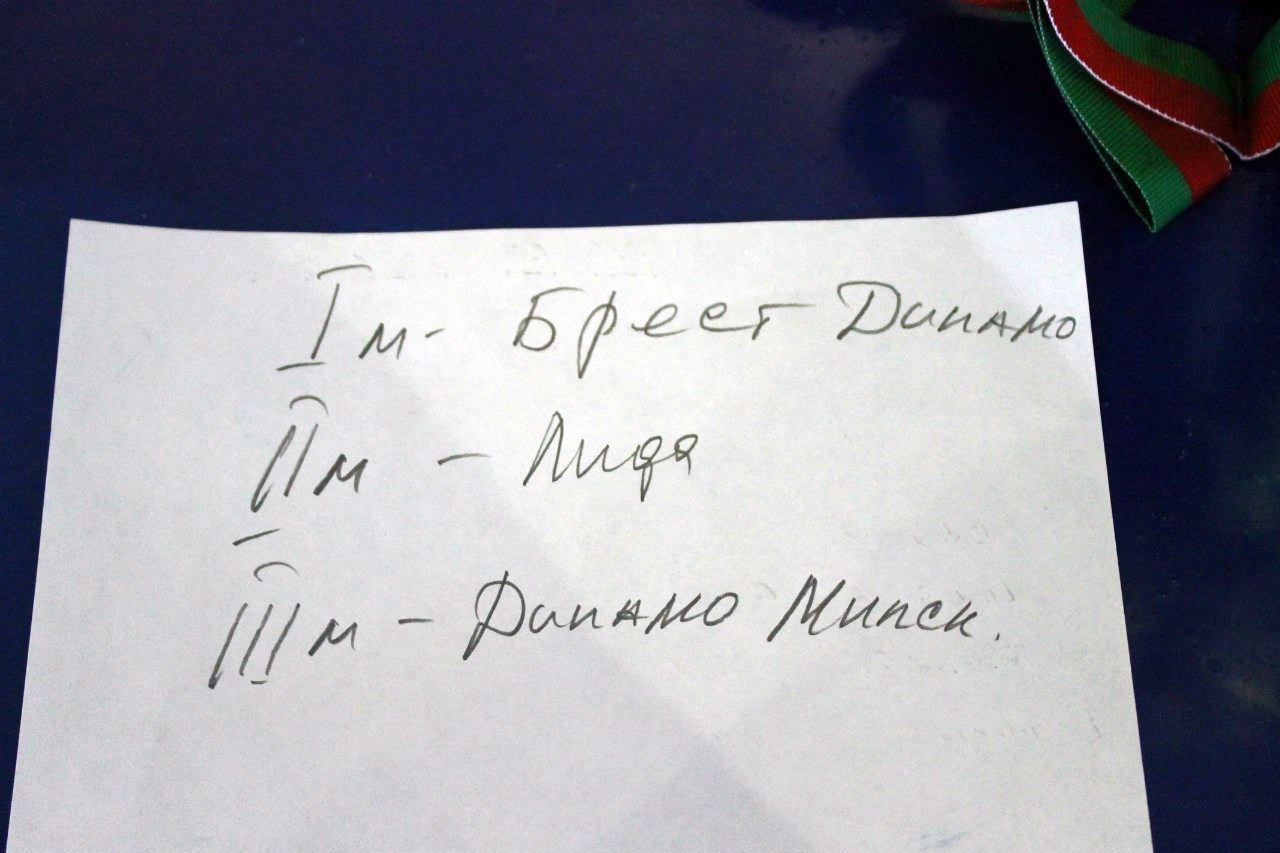 I м - Брест Динамо
II м - Лида
III м - Динамо Минск.